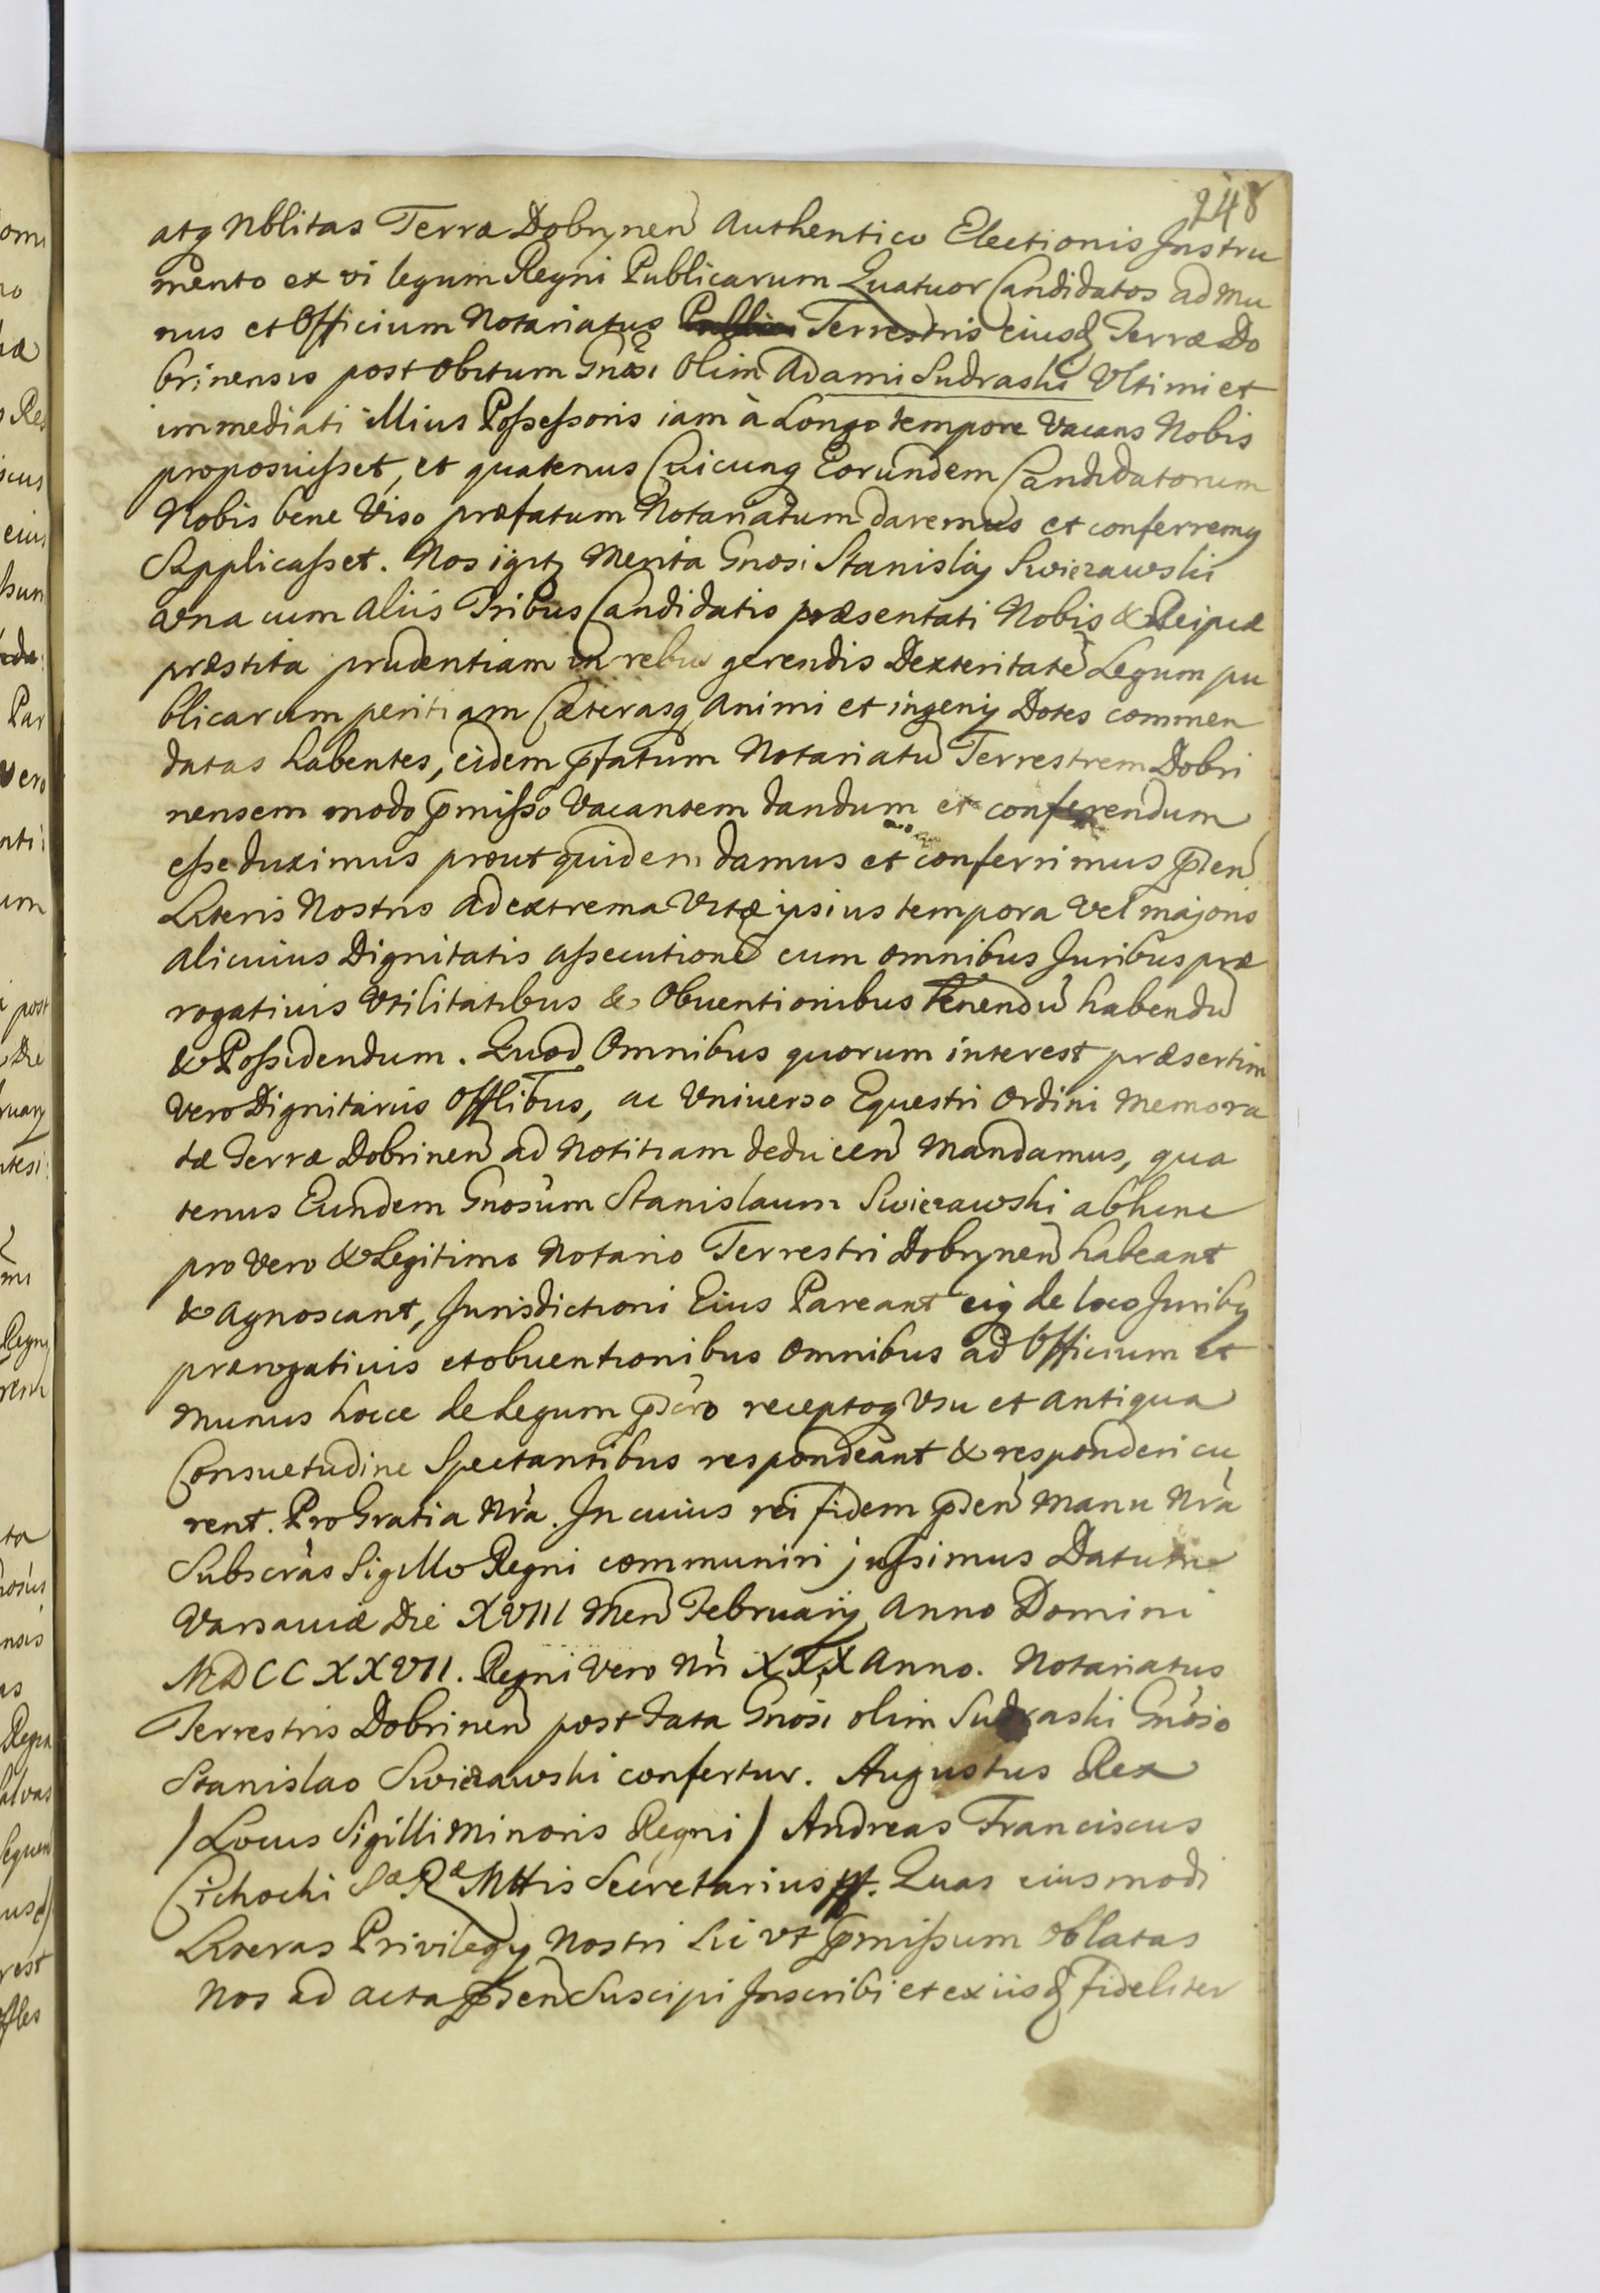 248
atq Nblitas Terræ Dobrynen Authentico Electionis Instru
mento ex vi legum Regni Publicarum Quatuor Candidatos ad Mu
nus et Officium Notariatus Terrestris eiusd Terræ Do
brinensis post obitum Gnosi Olim Adami Sudraski Vltimi et
immediati illius Possessoris iam à Longo tempore Vacans Nobis
proposuisset, et quatenus Cuicunq Eorundem Candidatorum
Nobis bene Viso præfatum Notariatum daremus et conferremq
Supplicasset. Nos igitq Merita Gnosi Stanislaj Swierawski
vna cum Aliis Tribus Candidatis præsentati Nobis & Reipcæ
præstita prudentiam in rebus gerendis Dexteritatē Legum pu
blicarum peritiam Cæterasq Animi et ingenij Dotes commen
datas habentes, eidem pfatum Notariatū Terrestrem Dobri
nensem modo pmisso Vacantem dandum et conferendum
esse duximus prout quidem damus et conferrimus pñden
Literis Nostris Ad extrema Vitæ ipsius tempora Vel majoris
alicuius Dignitatis assecutionē cum omnibus Juribus præ
rogatiuis Vtilitatibus & Obuentionibus Tenendū habendū
& Possidendum. Quod Omnibus quorum interest præsertim
Vero Dignitariis Offlibus, ac Vniuerso Equestri Ordini Memora
tæ Terræ Dobrinen ad Notitiam deducen Mandamus, qua
tenus Eundem Gnosum Stanislaum Swierawski abhinc
pro Vero & Legitimo Notario Terrestri Dobrynen habeant
& agnoscant, Jurisdictioni Eius Pareant eiq de loco Juribq
prærogatiuis et obuentionibus Omnibus ad Officium et
Munus hocce de Legum receptoq Vsu et Antiqua
Consuetudine Spectantibus respondeant & responderi cu
rent. Pro Gratia Nra. In cuius rei fidem pñden Manu Nra
Subscras Sigillo Regni communiri jussimus Datum
Varsauiæ Die XVIII Men February Anno Domini
MDCCXXVII. Regni Vero Nri XXX Anno. Notariatus
Terrestris Dobrinen post fata Gnosi olim Sudraski Gnoso
Stanislao Swierawski confertur. Augustus Rex
/ Locus Sigilli Minoris Regni / Andreas Franciscus
Cichocki Sæ Ræ Mttis Secretarius. Quas eiusmodi
Literas Privilegij Nostri sic vt pmissum Oblatas
Nos ad acta pñden Suscipi Inscribi et ex iisd fideliter